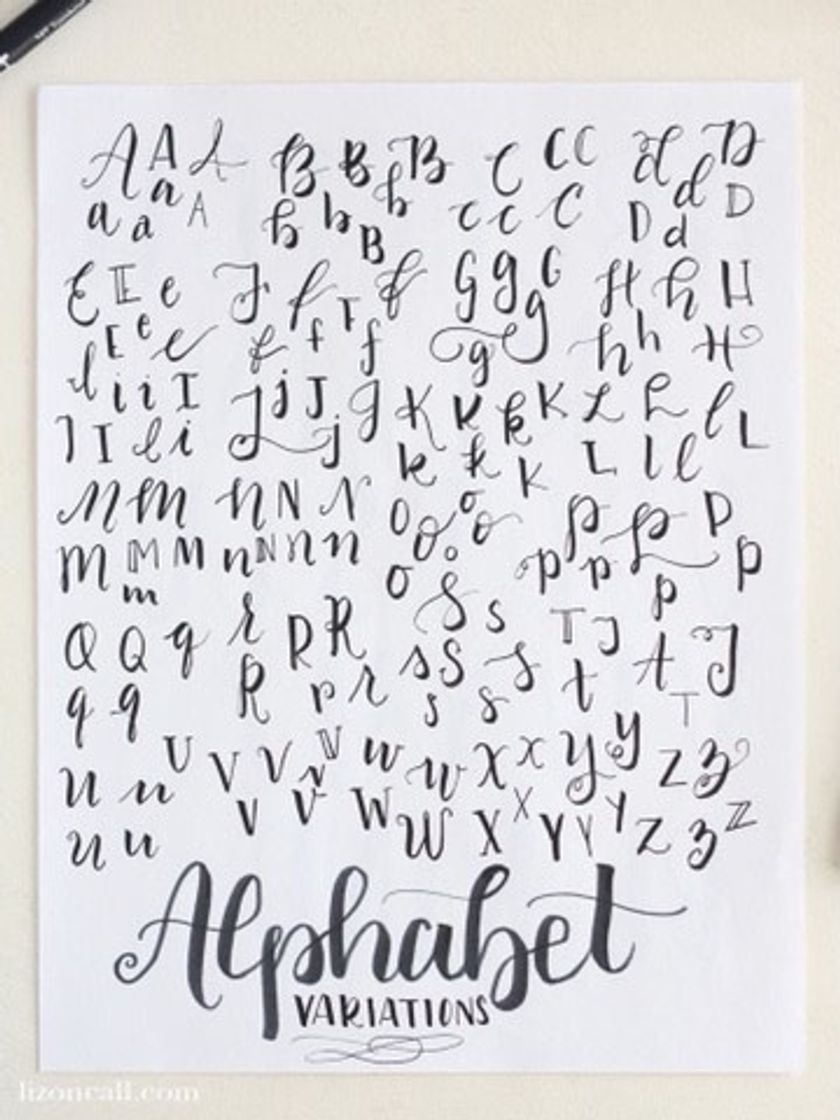 A A A B B B C C C D D D
a a a A b b b B c c C D d d D
E E e F f T f G g G H h H
E e e f f f g g h h H
l i i I J j J g K K k K L L l L
I I l i j k k K L l l
M M N N N O O o o P P P
M M M m n N n n O o p p p p
Q Q q r R R S s T J A J
q q R r r s S s s s t T
U V V V w w X x y y z z
u u v V V W W X X Y Y Y z z Z
u u
Alphabet
VARIATIONS
lizoncall.com